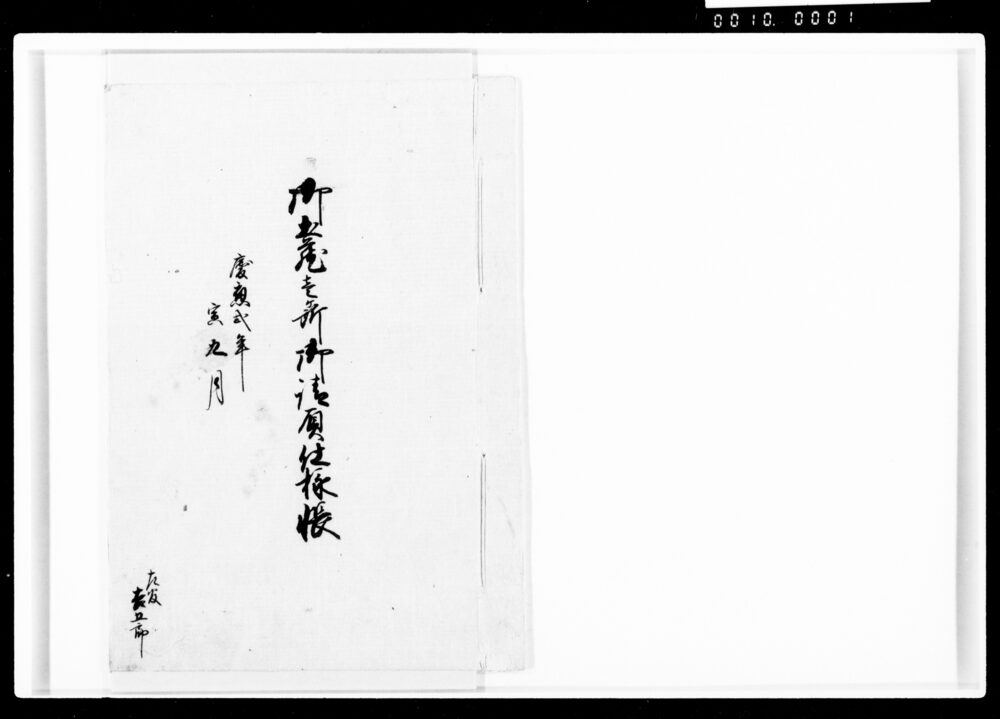 0010. 0001
御土蔵壱ヶ所御請負仕様帳
慶應弐年
寅九月
吉五郎